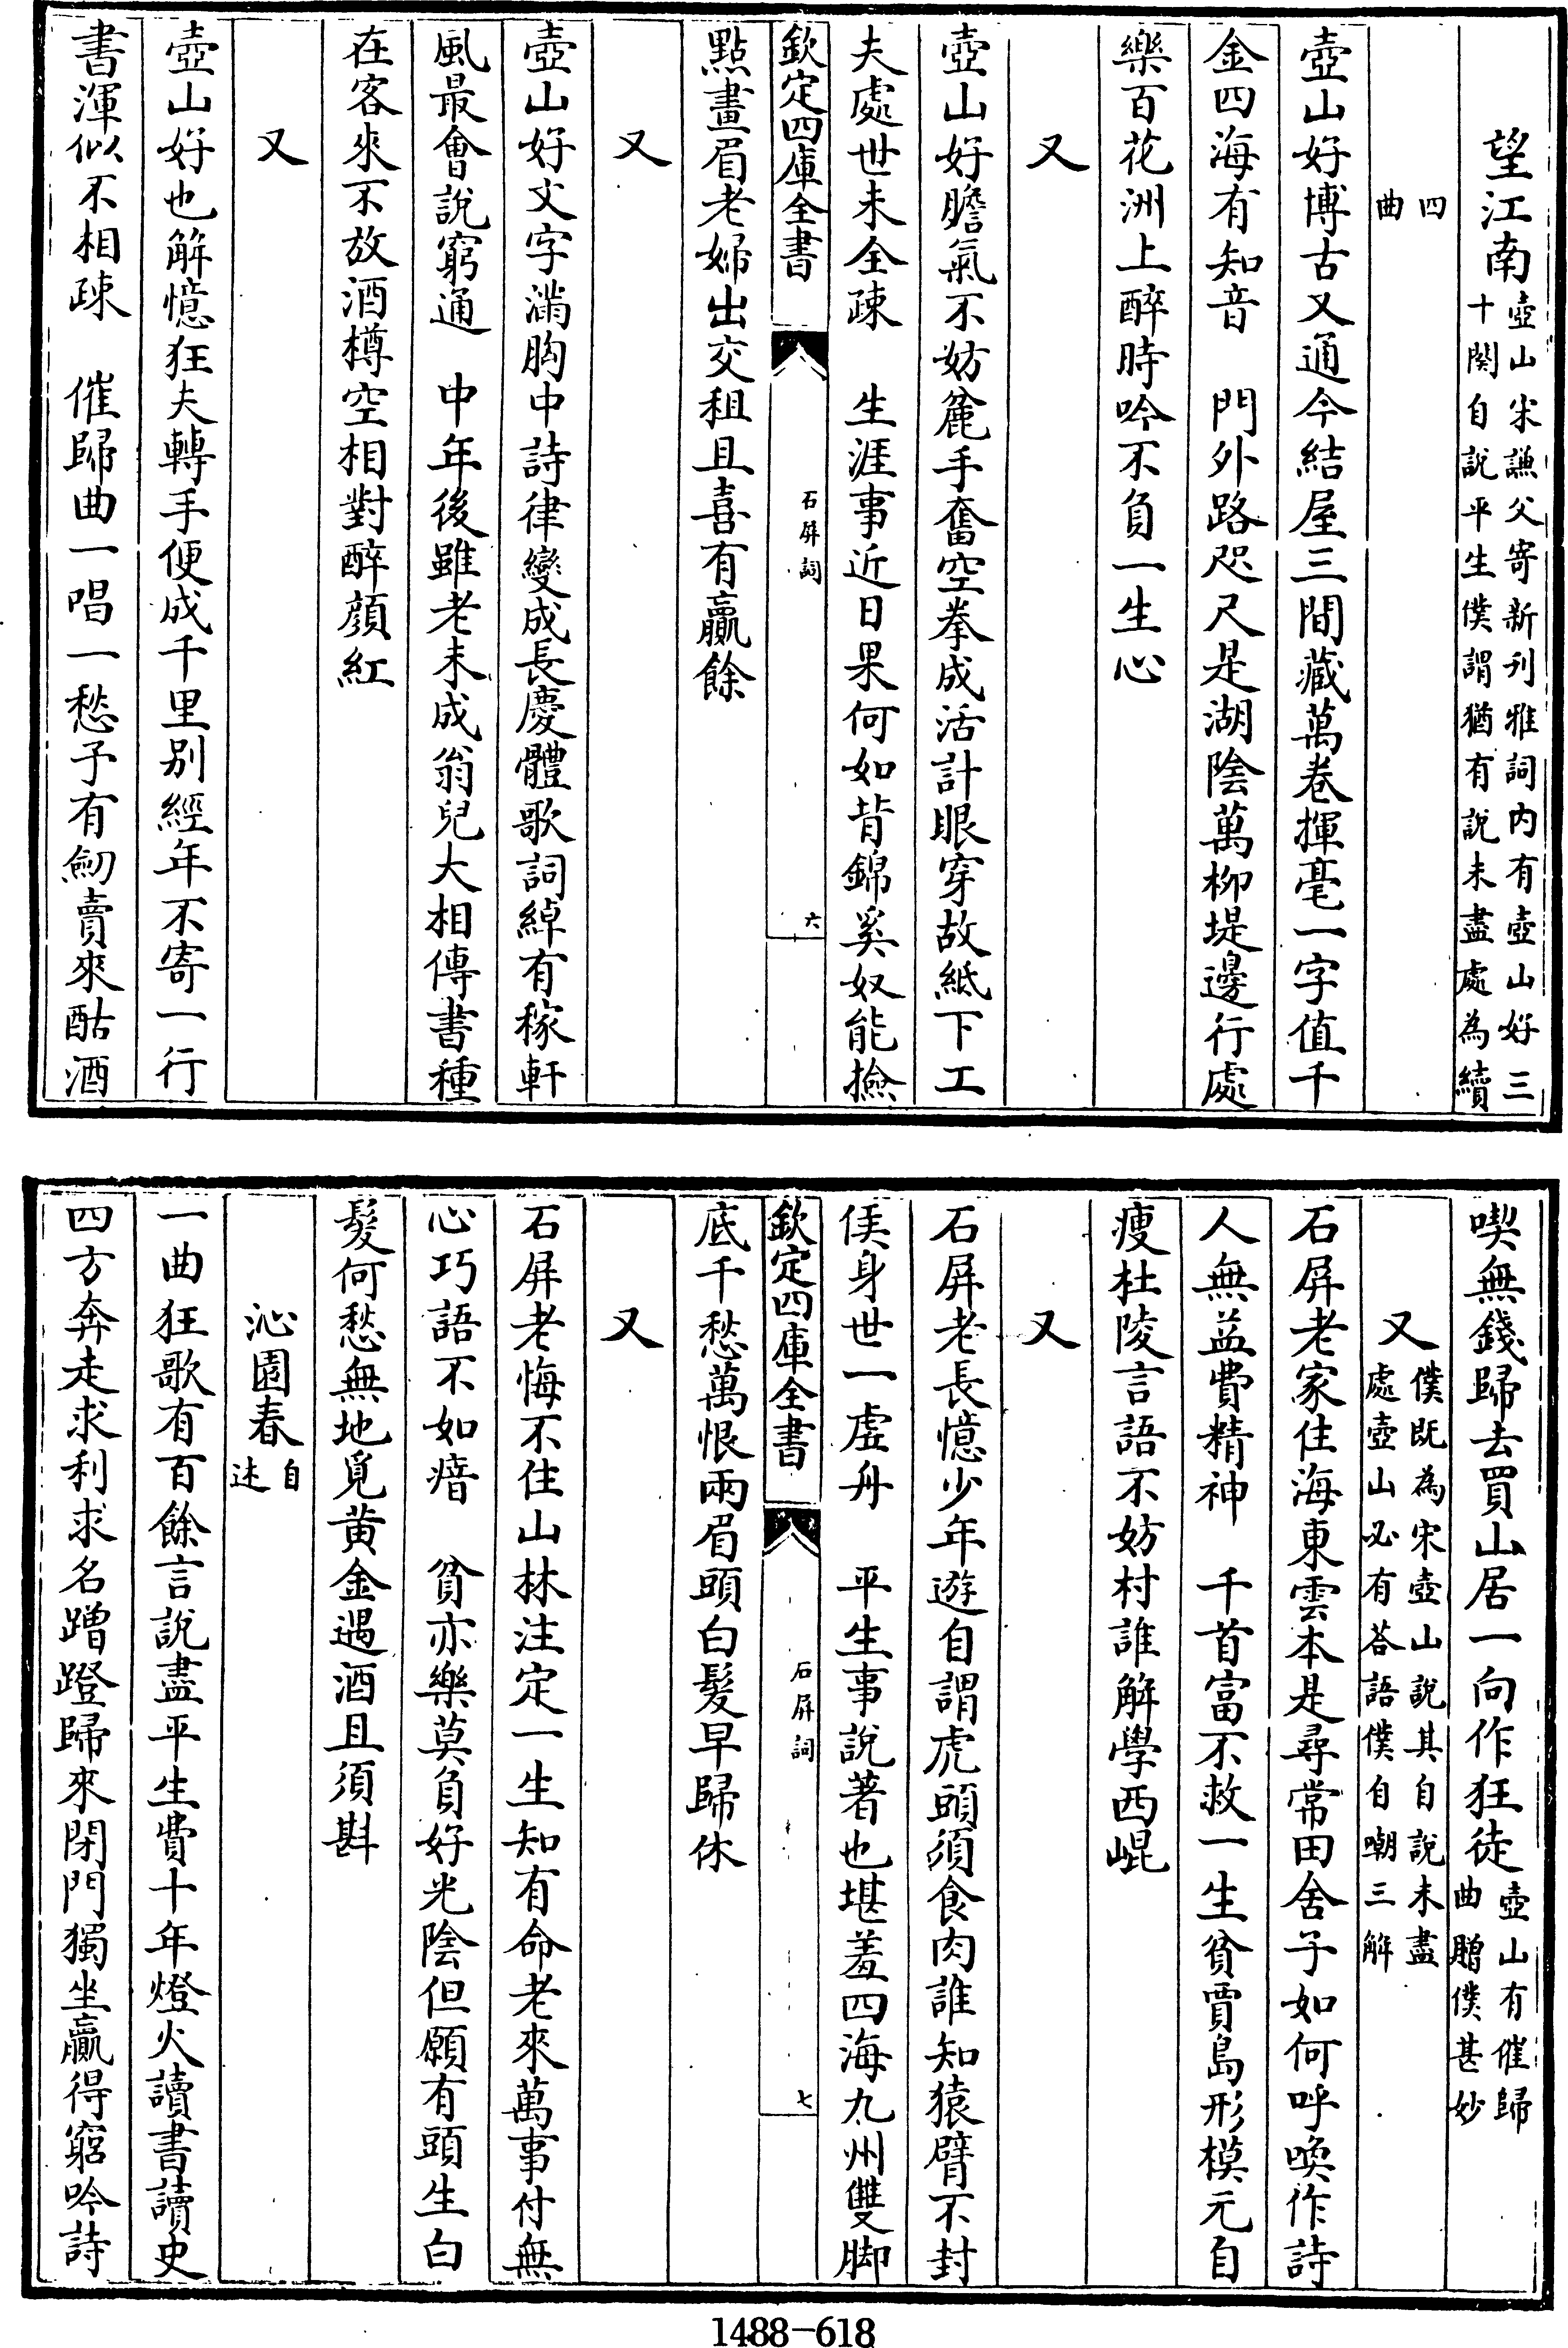 望江南壺山宋謙父寄新刊雅詞内有壺山好三
十闋自説平生僕謂猶有説未盡處為續
四
曲
壺山好博古又通今結屋三間藏萬卷揮毫一字值千
金四海有知音　門外路咫尺是湖陰萬柳堤邊行處
樂百花洲上醉時吟不負一生心
又
壺山好膽氣不妨麄手奮空拳成活計眼穿故紙下工
夫處世未全疎　生涯事近日果何如背錦奚奴能撿
欽定四庫全書　石屏詞　六
點畫眉老婦出交租且喜有贏餘
又
壺山好文字滿胸中詩律變成長慶體歌詞綽有稼軒
風最會説窮通　中年後雖老未成翁兒大相傳書種
在客來不放酒樽空相對醉顔紅
又
壺山好也解憶狂夫轉手便成千里别經年不寄一行
書渾似不相疎　催歸曲一唱一愁予有劒賣來酤酒
喫無錢歸去買山居一向作狂徒壺山有催歸
曲贈僕甚妙
又僕既為宋壺山説其自説未盡
處壺山必有荅語僕自嘲三解
石屏老家住海東雲本是尋常田舍子如何呼喚作詩
人無益費精神　千首富不救一生貧賈島形模元自
瘦杜陵言語不妨村誰解學西崐
又
石屏老長憶少年遊自謂虎頭須食肉誰知猿臂不封
侯身世一虚舟　平生事説著也堪羞四海九州雙脚
欽定四庫全書　石屏詞　七
底千愁萬恨兩眉頭白髮早歸休
又
石屏老悔不住山林注定一生知有命老來萬事付無
心巧語不如瘖　貧亦樂莫負好光陰但願有頭生白
髮何愁無地覓黄金遇酒且須斟
沁園春自
述
一曲狂歌有百餘言説盡平生費十年燈火讀書讀史
四方奔走求利求名蹭蹬歸來閉門獨坐贏得窮吟詩
1488-618